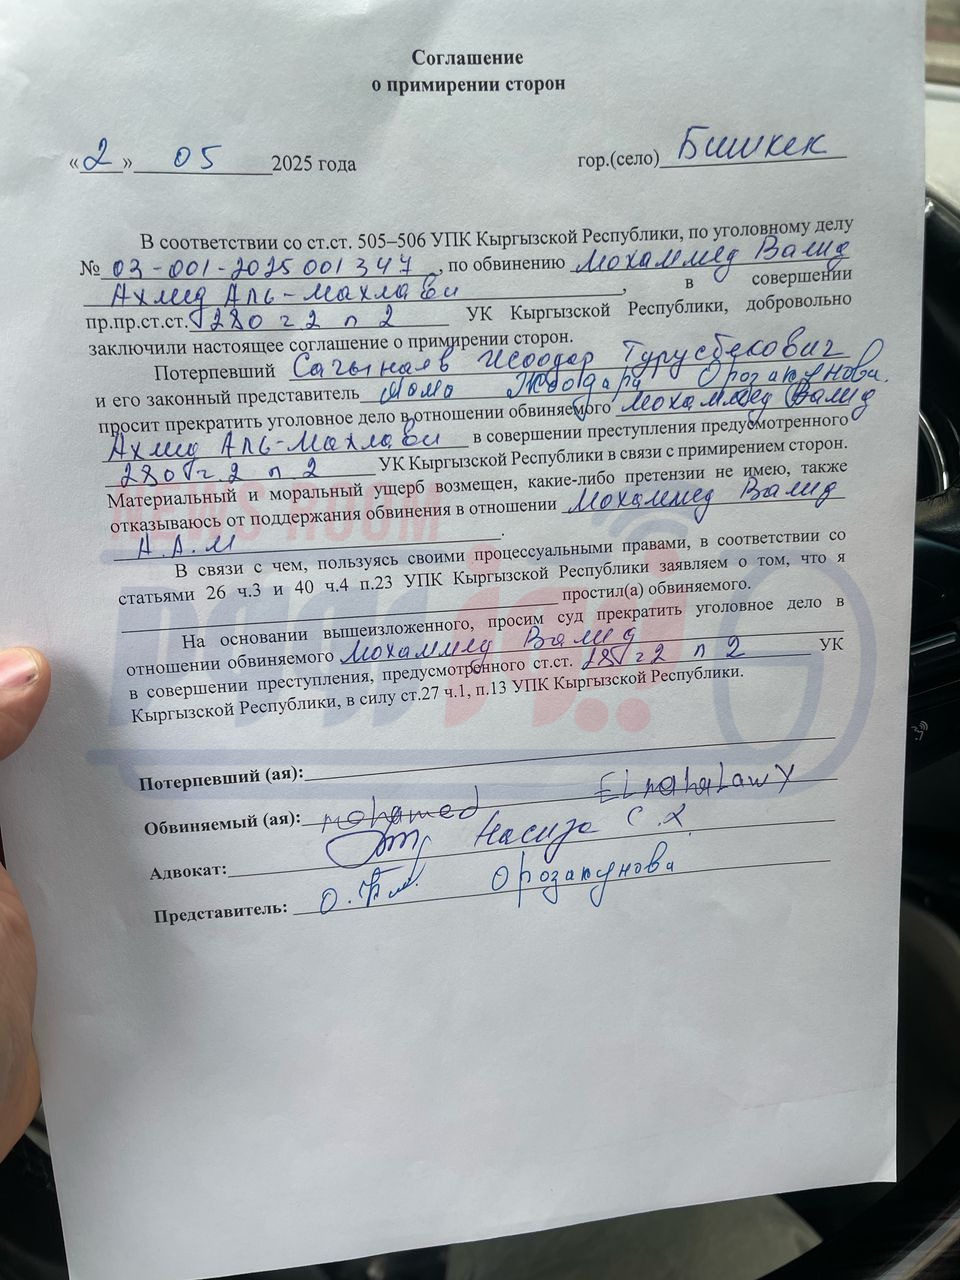 Соглашение
о примирении сторон
« 2 » 05 2025 года гор.(село) Бишкек
В соответствии со ст.ст. 505–506 УПК Кыргызской Республики, по уголовному делу
№ 03-001-2025 001347, по обвинению Мохаммед Валид
Ахмед Аль-Махлави, в совершении
пр.пр.ст.ст. 280 ч 2 п 2 УК Кыргызской Республики, добровольно
заключили настоящее соглашение о примирении сторон.
Потерпевший Турусбекович
и его законный представитель мама Орозакунова.
просит прекратить уголовное дело в отношении обвиняемого Мохаммед Валид
Ахмед Аль-Махлави в совершении преступления предусмотренного
280 ч. 2 п 2 УК Кыргызской Республики в связи с примирением сторон.
Материальный и моральный ущерб возмещен, какие-либо претензии не имею, также
отказываюсь от поддержания обвинения в отношении Мохаммед Валид
А.А.М.
В связи с чем, пользуясь своими процессуальными правами, в соответствии со
статьями 26 ч.3 и 40 ч.4 п.23 УПК Кыргызской Республики заявляем о том, что я
простил(а) обвиняемого.
На основании вышеизложенного, просим суд прекратить уголовное дело в
отношении обвиняемого Мохаммед Валид
в совершении преступления, предусмотренного ст.ст. 280 ч 2 п 2 УК
Кыргызской Республики, в силу ст.27 ч.1, п.13 УПК Кыргызской Республики.
Потерпевший (ая):
Обвиняемый (ая): mohamed ELmahaLawy
Адвокат:
Представитель: Орозакунова
NEWS ROOM
نيوز رووم